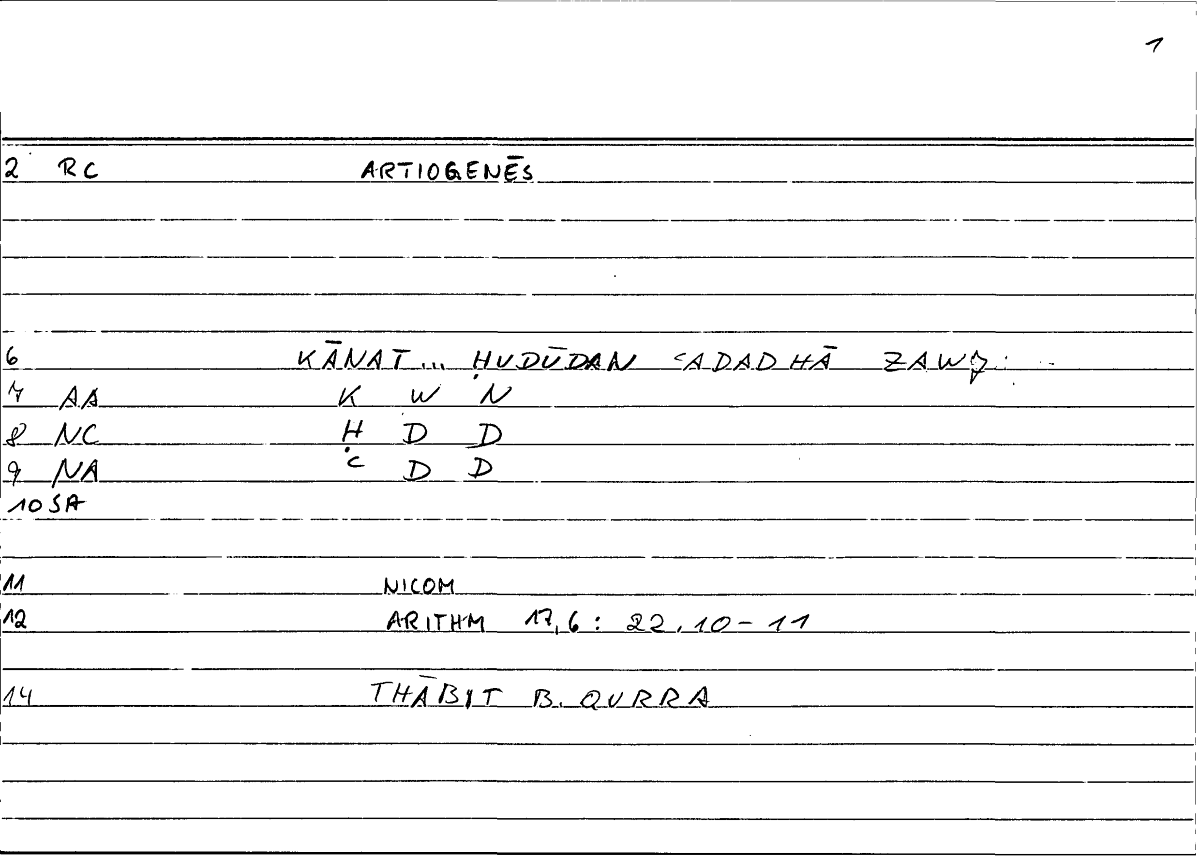 1
2 RC ARTIOGENĒS
6 KĀNAT... ḤUDŪDAN ʿADADHĀ ZAWǦ
7 AA K W N
8 NC Ḥ D D
9 NA ʿ D D
10 SA
11 NICOM
12 ARITHM 17,6 : 22.10-11
14 THĀBIT B. QURRA